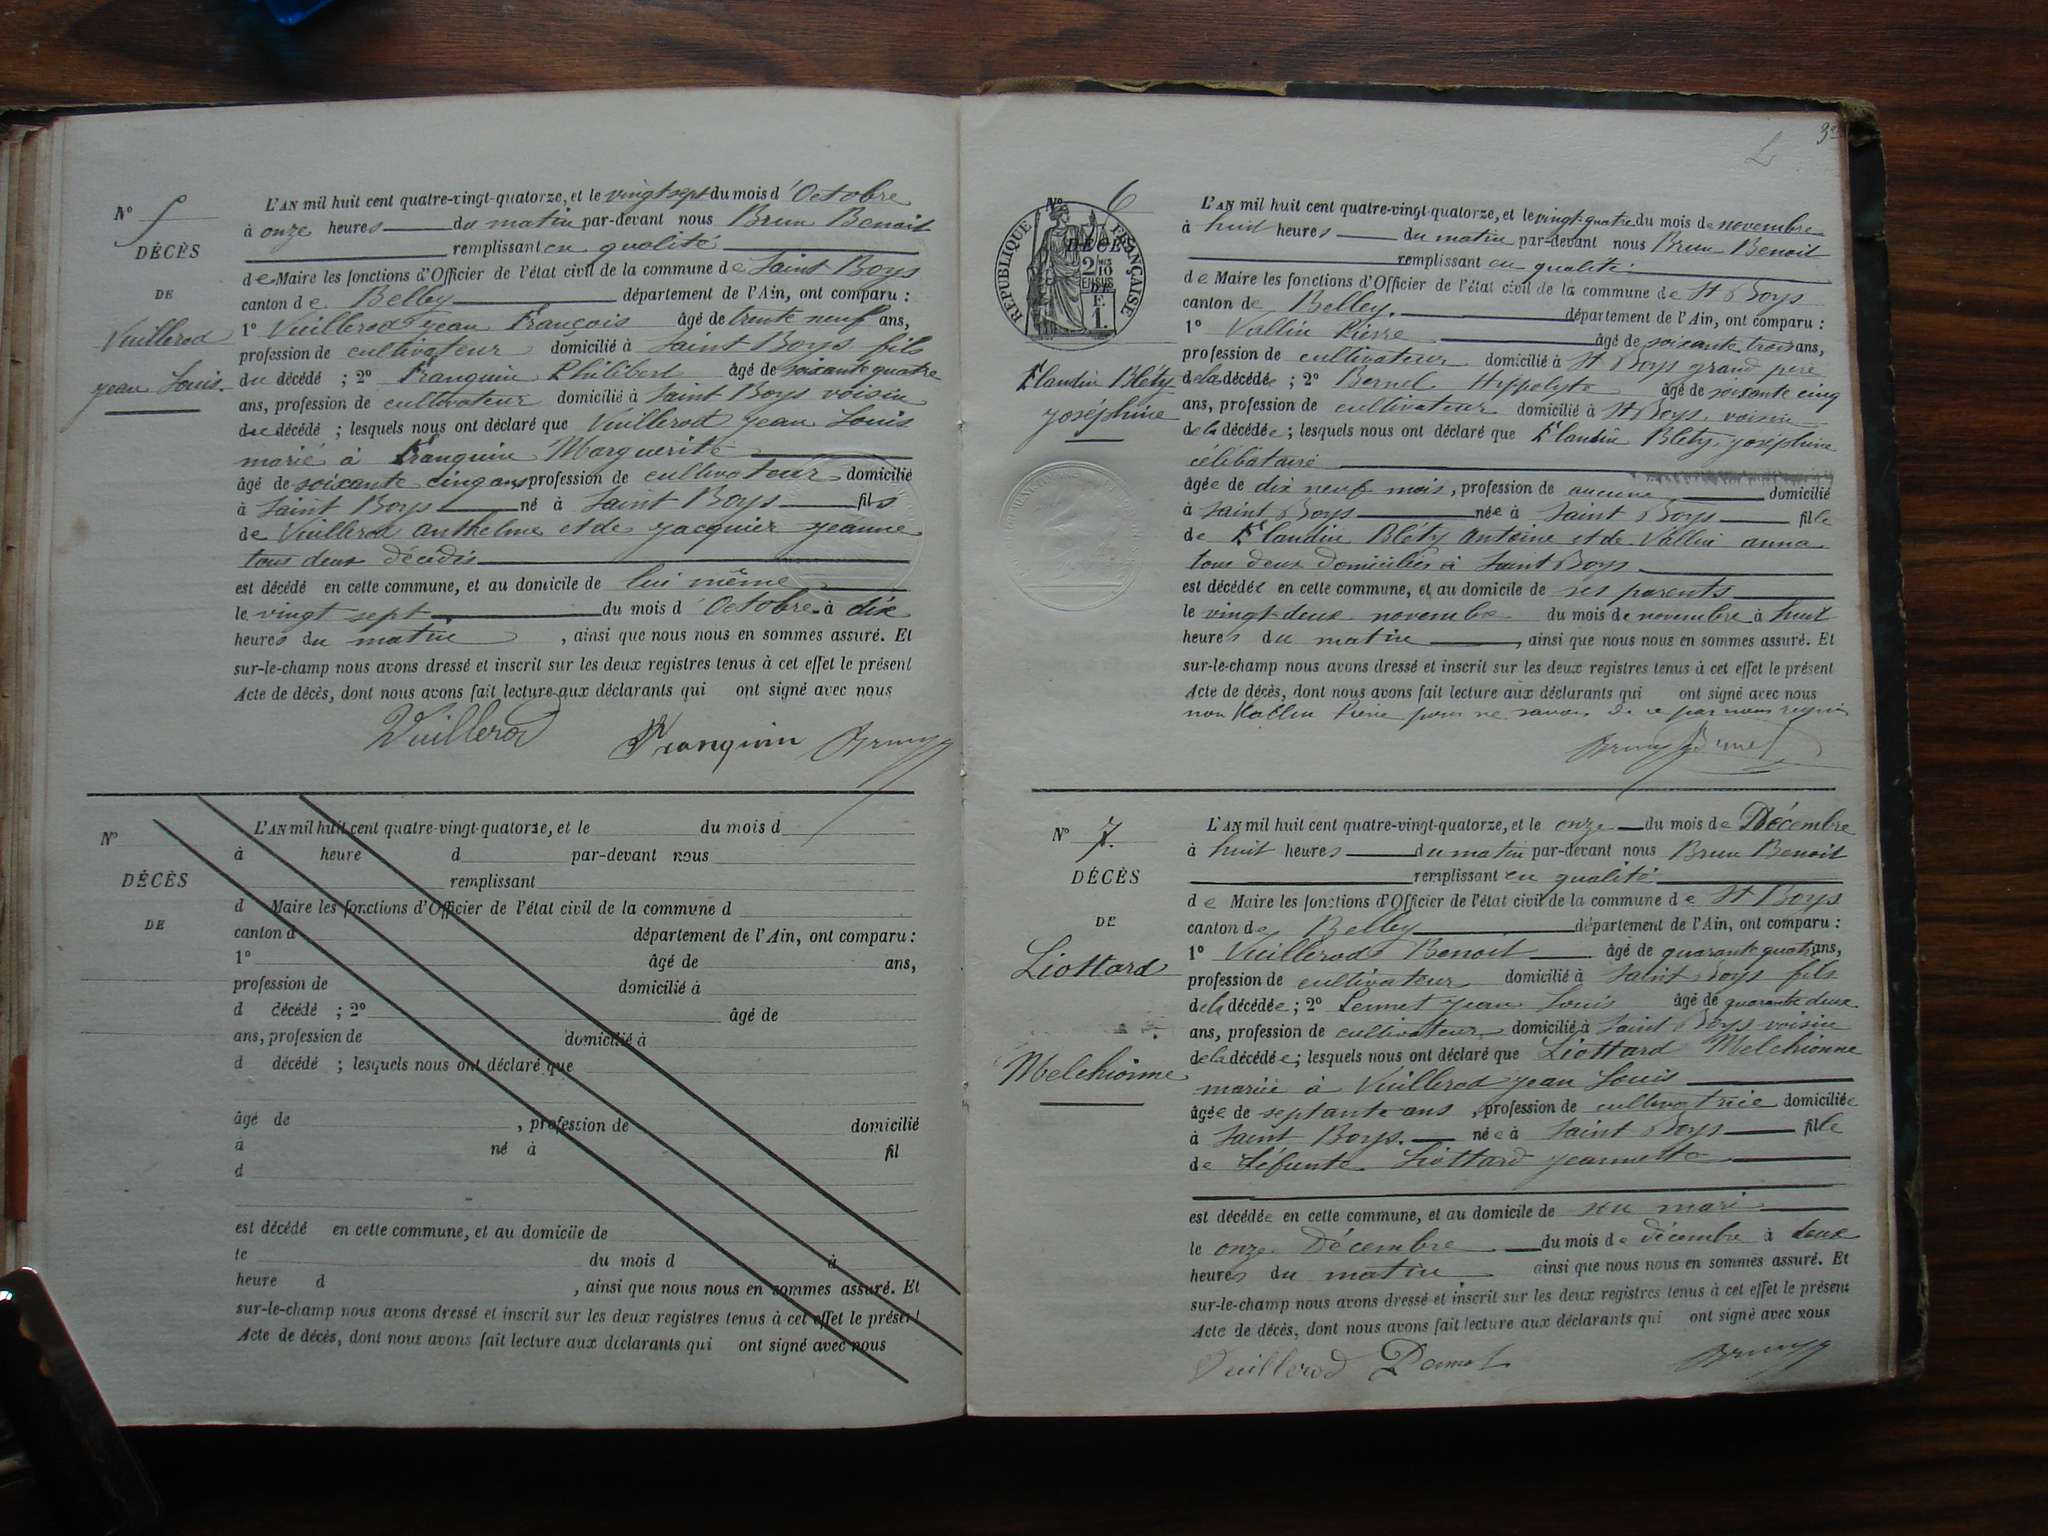 N° 5
DÉCÈS
DE
Vuillerod
Jean Louis.
L'AN mil huit cent quatre-vingt-quatorze, et le vingt sept du mois d'Octobre
à onze heures du matin par-devant nous Brun Benoit
remplissant en qualité
de Maire les fonctions d'Officier de l'état civil de la commune de Saint Boys
canton de Belley département de l'Ain, ont comparu :
1° Vuillerod Jean François âgé de trente neuf ans,
profession de cultivateur domicilié à Saint Boys fils
du décédé ; 2° Franquin Philibert âgé de soixante quatre
ans, profession de cultivateur domicilié à Saint Boys voisin
du décédé ; lesquels nous ont déclaré que Vuillerod Jean Louis
marié à Franquin Marguerite
âgé de soixante cinq ans, profession de cultivateur domicilié
à Saint Boys né à Saint Boys fils
de Vuillerod Anthelme et de Jacquier Jeanne
tous deux décédés
est décédé en cette commune, et au domicile de lui même
le vingt sept du mois d'Octobre à dix
heures du matin, ainsi que nous nous en sommes assuré. Et
sur-le-champ nous avons dressé et inscrit sur les deux registres tenus à cet effet le présent
Acte de décès, dont nous avons fait lecture aux déclarants qui ont signé avec nous
Vuillerod Franquin Brun
N°
DÉCÈS
DE
L'AN mil huit cent quatre-vingt-quatorze, et le du mois d
à heure d par-devant nous
remplissant
d Maire les fonctions d'Officier de l'état civil de la commune d
canton d département de l'Ain, ont comparu :
1° âgé de ans,
profession de domicilié à
d décédé ; 2° âgé de
ans, profession de domicilié à
d décédé ; lesquels nous ont déclaré que
âgé de , profession de domicilié
à né à fil
d
est décédé en cette commune, et au domicile de
le du mois d à
heure d , ainsi que nous nous en sommes assuré. Et
sur-le-champ nous avons dressé et inscrit sur les deux registres tenus à cet effet le présent
Acte de décès, dont nous avons fait lecture aux déclarants qui ont signé avec nous
N° 6
RÉPUBLIQUE FRANÇAISE
DÉCÈS
2/10 EN SUS
F. 1.
Flandin Bléty
Joséphine
L'AN mil huit cent quatre-vingt-quatorze, et le vingt-quatre du mois de novembre
à huit heures du matin par-devant nous Brun Benoit
remplissant en qualité
de Maire les fonctions d'Officier de l'état civil de la commune de St Boys
canton de Belley. département de l'Ain, ont comparu :
1° Vallin Pierre âgé de soixante trois ans,
profession de cultivateur domicilié à St Boys grand père
de la décédée ; 2° Bernel Hyppolyte âgé de soixante cinq
ans, profession de cultivateur domicilié à St Boys voisin
de la décédée ; lesquels nous ont déclaré que Flandin Bléty Joséphine
célibataire
âgée de dix neuf mois, profession de aucune domicilié
à Saint Boys née à Saint Boys fille
de Flandin Bléty Antoine et de Vallin Anna
tous deux domiciliés à Saint Boys
est décédée en cette commune, et au domicile de ses parents
le vingt-deux novembre du mois de novembre à huit
heures du matin, ainsi que nous nous en sommes assuré. Et
sur-le-champ nous avons dressé et inscrit sur les deux registres tenus à cet effet le présent
Acte de décès, dont nous avons fait lecture aux déclarants qui ont signé avec nous
non Vallin Pierre pour ne savoir de ce par nous requis
Brun Bernel
N° 7.
DÉCÈS
DE
Liottard
Melchionne
L'AN mil huit cent quatre-vingt-quatorze, et le onze du mois de Décembre
à huit heures du matin par-devant nous Brun Benoit
remplissant en qualité
de Maire les fonctions d'Officier de l'état civil de la commune de St Boys
canton de Belley département de l'Ain, ont comparu :
1° Vuillerod Benoit âgé de quarante quatre ans,
profession de cultivateur domicilié à Saint Boys fils
de la décédée ; 2° Pennet Jean Louis âgé de quarante deux
ans, profession de cultivateur domicilié à Saint Boys voisin
de la décédée ; lesquels nous ont déclaré que Liottard Melchionne
mariée à Vuillerod Jean Louis
âgée de septante ans, profession de cultivatrice domiciliée
à Saint Boys. née à Saint Boys fille
de défunte Liottard Jeannette
est décédée en cette commune, et au domicile de son mari
le onze Décembre du mois de décembre à deux
heures du matin ainsi que nous nous en sommes assuré. Et
sur-le-champ nous avons dressé et inscrit sur les deux registres tenus à cet effet le présent
Acte de décès, dont nous avons fait lecture aux déclarants qui ont signé avec nous
Vuillerod Pennet Brun